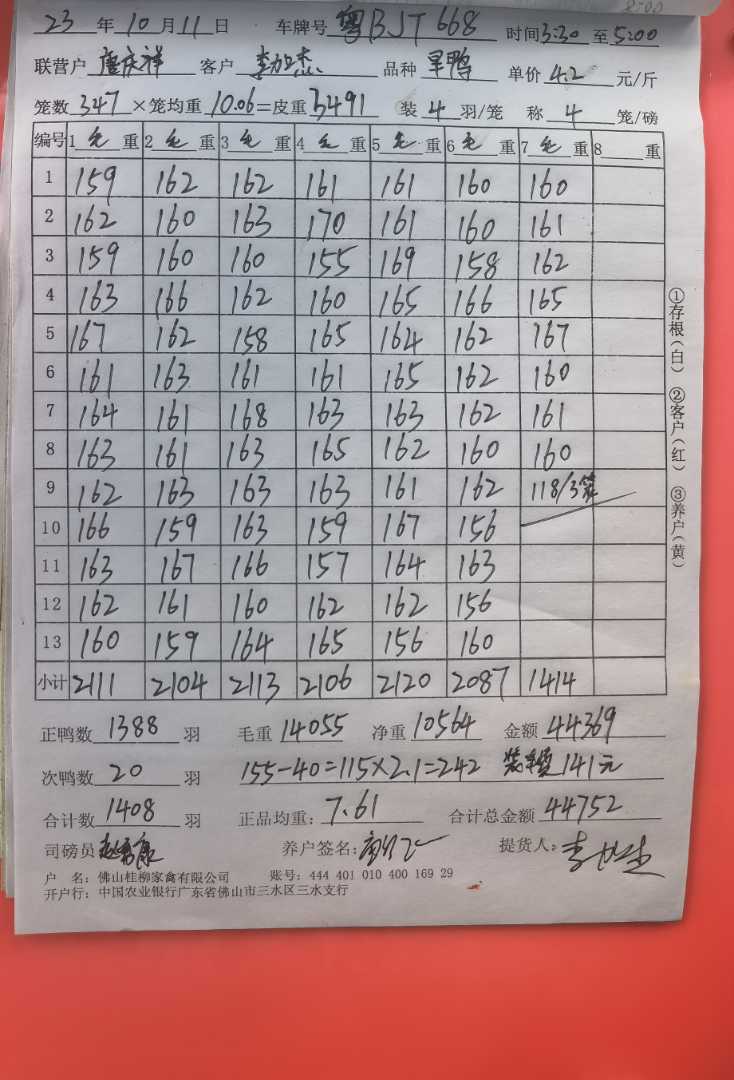 23 年 10 月 11 日 车牌号 粤BJT668 时间 3:30 至 5:00
联营户 唐庆祥 客户 品种 旱鸭 单价 4.2 元/斤
笼数 347 ×笼均重 10.06 =皮重 3491 装 4 羽/笼 称 4 笼/磅
编号 1 毛 重 2 毛 重 3 毛 重 4 毛 重 5 毛 重 6 毛 重 7 毛 重 8 重
1 159 162 162 161 161 160 160
2 162 160 163 170 161 160 161
3 159 160 160 155 169 158 162
4 163 166 162 160 165 166 165
5 167 162 158 165 164 162 167
6 161 163 161 161 165 162 160
7 164 161 168 163 163 162 161
8 163 161 163 165 162 160 160
9 162 163 163 163 161 162 118/3笼
10 166 159 163 159 167 156
11 163 167 166 157 164 163
12 162 161 160 162 162 156
13 160 159 164 165 156 160
小计 2111 2104 2113 2106 2120 2087 1414
①存根(白) ②客户(红) ③养户(黄)
正鸭数 1388 羽 毛重 14055 净重 10564 金额 44369
次鸭数 20 羽 155-40=115×2.1=242 装车费 141元
合计数 1408 羽 正品均重: 7.61 合计总金额 44752
司磅员 养户签名: 提货人:
户 名: 佛山桂柳家禽有限公司 账号: 444 401 010 400 169 29
开户行: 中国农业银行广东省佛山市三水区三水支行